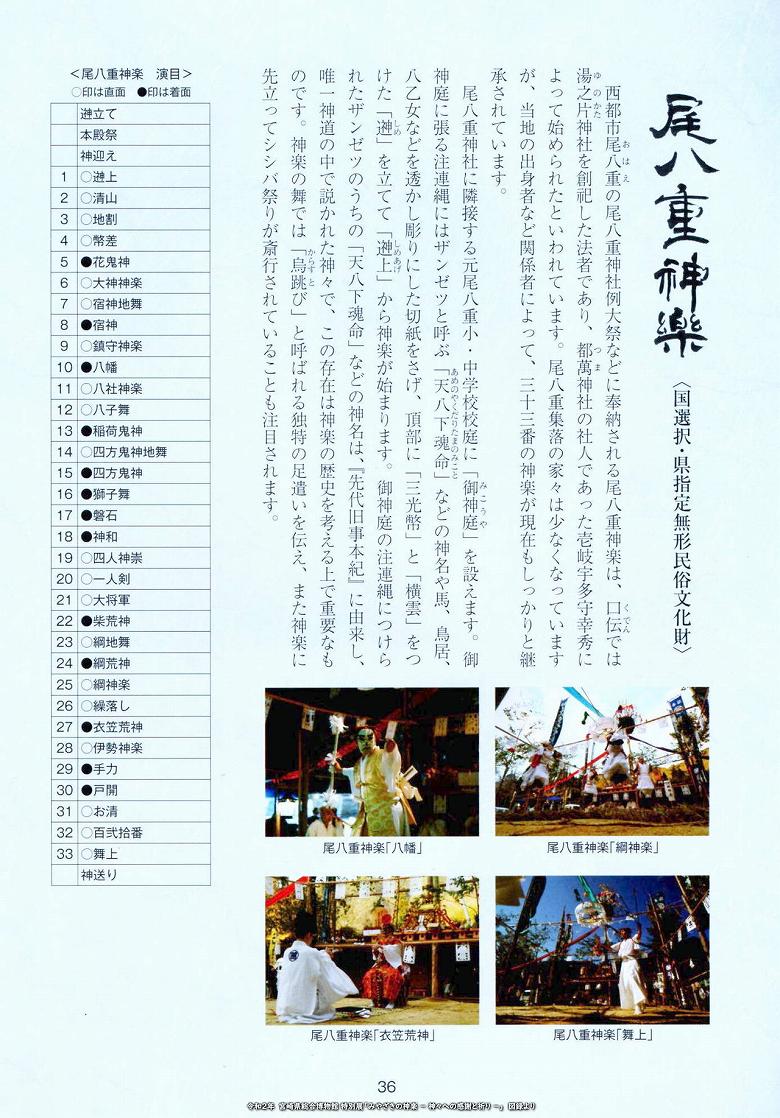 尾八重神楽
〈国選択・県指定無形民俗文化財〉
西都市尾八重の尾八重神社例大祭などに奉納される尾八重神楽は、口伝では
湯之片神社を創祀した法者であり、都萬神社の社人であった壱岐宇多守幸秀に
よって始められたといわれています。尾八重集落の家々は少なくなっています
が、当地の出身者など関係者によって、三十三番の神楽が現在もしっかりと継
承されています。
尾八重神社に隣接する元尾八重小・中学校校庭に「御神庭」を設えます。御
神庭に張る注連縄にはザンゼツと呼ぶ「天八下魂命」などの神名や馬、鳥居、
八乙女などを透かし彫りにした切紙をさげ、頂部に「三光幣」と「横雲」をつ
けた「𨕫」を立てて「𨕫上」から神楽が始まります。御神庭の注連縄につけら
れたザンゼツのうちの「天八下魂命」などの神名は、『先代旧事本紀』に由来し、
唯一神道の中で説かれた神々で、この存在は神楽の歴史を考える上で重要なも
のです。神楽の舞では「烏跳び」と呼ばれる独特の足遣いを伝え、また神楽に
先立ってシシバ祭りが斎行されていることも注目されます。
<尾八重神楽 演目>
○印は直面 ●印は着面
𨕫立て
本殿祭
神迎え
1 ○𨕫上
2 ○清山
3 ○地割
4 ○幣差
5 ●花鬼神
6 ○大神神楽
7 ○宿神地舞
8 ●宿神
9 ○鎮守神楽
10 ●八幡
11 ○八社神楽
12 ○八子舞
13 ●稲荷鬼神
14 ○四方鬼神地舞
15 ●四方鬼神
16 ●獅子舞
17 ●磐石
18 ●神和
19 ○四人神崇
20 ○一人剣
21 ○大将軍
22 ●柴荒神
23 ○綱地舞
24 ●綱荒神
25 ○綱神楽
26 ○繰落し
27 ●衣笠荒神
28 ○伊勢神楽
29 ●手力
30 ●戸開
31 ○お清
32 ○百弐拾番
33 ○舞上
神送り
尾八重神楽「八幡」
尾八重神楽「綱神楽」
尾八重神楽「衣笠荒神」
尾八重神楽「舞上」
36
令和2年 宮崎県総合博物館 特別展「みやざきの神楽 － 神々への感謝と祈り －」 図録より